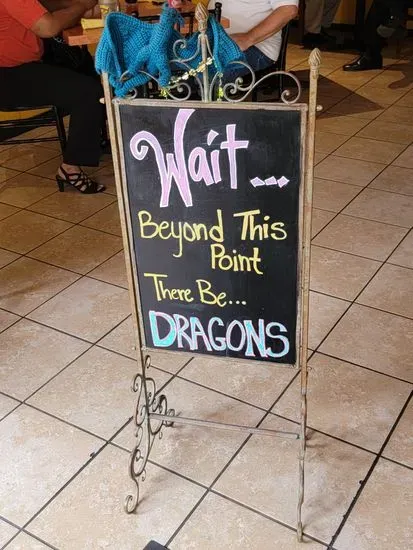 Wait...
Beyond This
Point
There Be...
DRAGONS